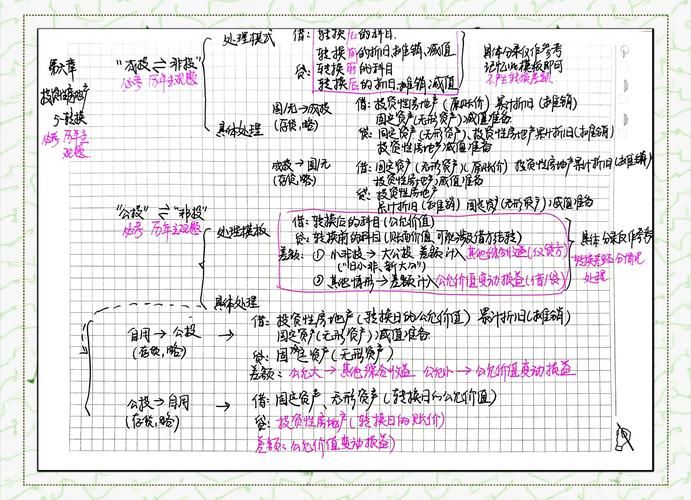 第六章
投资性房地产
5-转换
必考 历年主观题
"成投 ⇌ 非投"
必考 历年主观题
处理模式
借：转换后的科目
转换前的折旧、摊销、减值
贷：转换前的科目
转换后的折旧、摊销、减值
具体分录仅作参考
记忆以模板即可
不产生转换差额
具体处理
固/无→成投
(存货,略)
借：投资性房地产（原账价）累计折旧（摊销）
固定资产（无形资产）减值准备
贷：固定资产（无形资产）、投资性房地产累计折旧（摊销）
投资性房地产减值准备
成投→固/无
(存货,略)
借：固定资产（无形资产）（原账价）投资性房地产累计折旧（摊销）
投资性房地产减值准备
贷：投资性房地产
累计折旧（摊销）固定资产（无形资产）减值准备
"公投" ⇌ "非投"
必考 历年主观题
处理模板
借：转换后的科目（公允价值）
贷：转换前的科目（账面价值,可能涉及借方结转）
差额：① 小非投→大公投 差额计入 其他综合收益（仅贷方）
("旧小非、新大公")
② 其他情形→差额计入 公允价值变动损益（借/贷）
具体分录仅作参考
转换差额分情况
处理
具体处理
自用→公投
(存货,略)
→
借：投资性房地产（转换日的公允价值）累计折旧（摊销）
固定资产（无形资产）减值准备
贷：固定资产（无形资产）
差额：公允大→其他综合收益 公允小→公允价值变动损益
公投→自用
(存货,略)
→
借：固定资产、无形资产（转换日的公允价值）
贷：投资性房地产（转换日的账价）
差额：公允价值变动损益